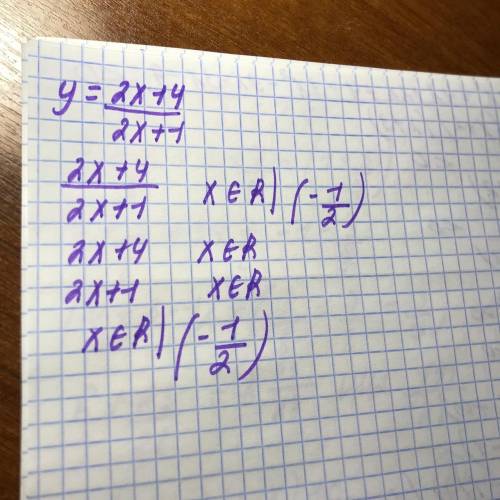 y = (2x+4)/(2x+1)
(2x+4)/(2x+1) x∈R | (-1/2)
2x+4 x∈R
2x+1 x∈R
x∈R | (-1/2)